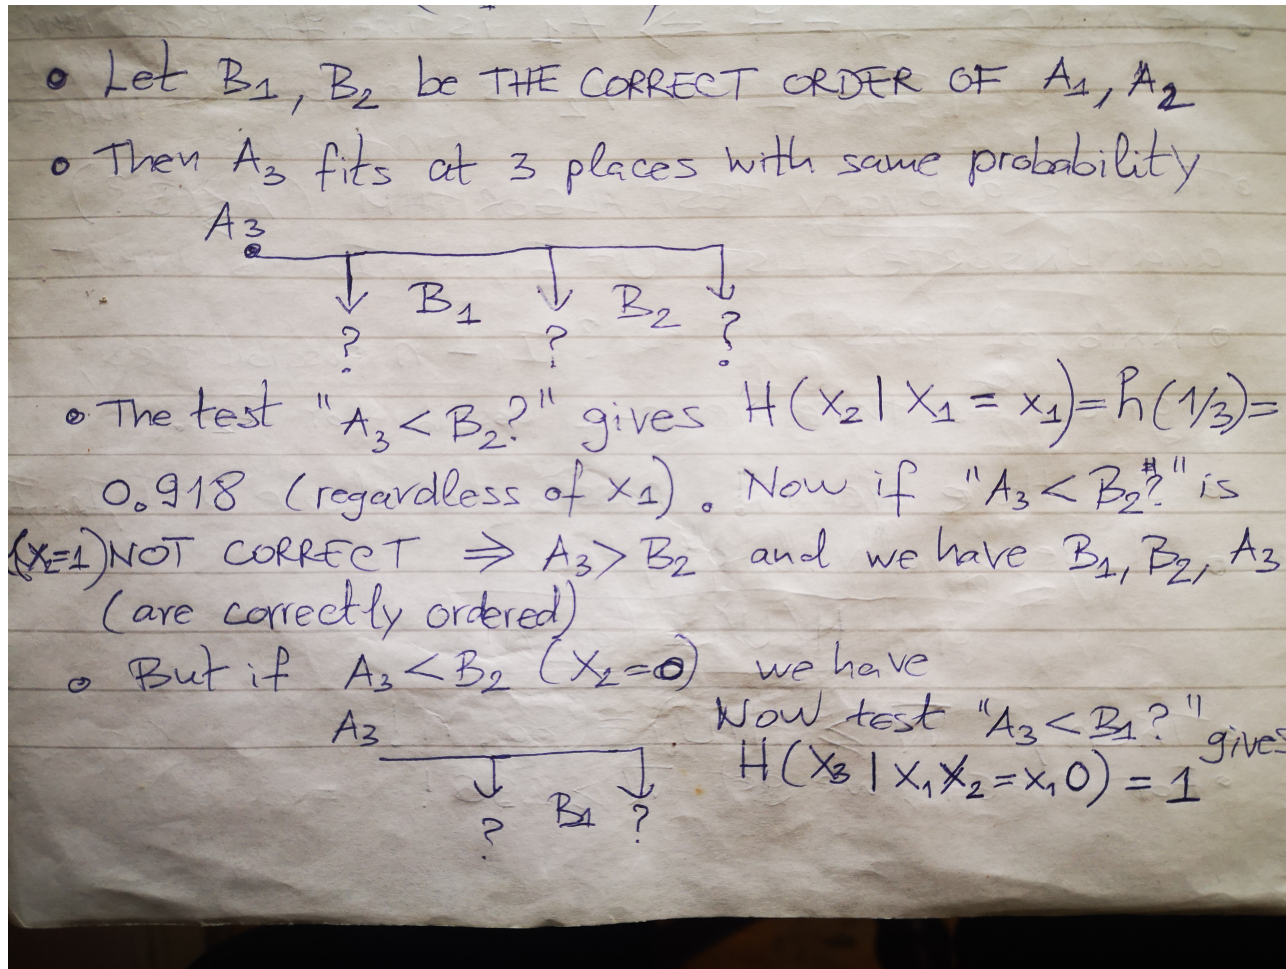 • Let B₁, B₂ be THE CORRECT ORDER OF A₁, A₂
• Then A₃ fits at 3 places with same probability
A₃
B₁ B₂
? ? ?
• The test "A₃ < B₂?" gives H(X₂ | X₁ = x₁) = h(1/3) =
0.918 (regardless of x₁). Now if "A₃ < B₂?" is
(X₂=1) NOT CORRECT ⇒ A₃ > B₂ and we have B₁, B₂, A₃
(are correctly ordered)
• But if A₃ < B₂ (X₂=0) we have
A₃
? B₁ ?
Now test "A₃ < B₁?" gives
H(X₃ | X₁X₂ = x₁0) = 1